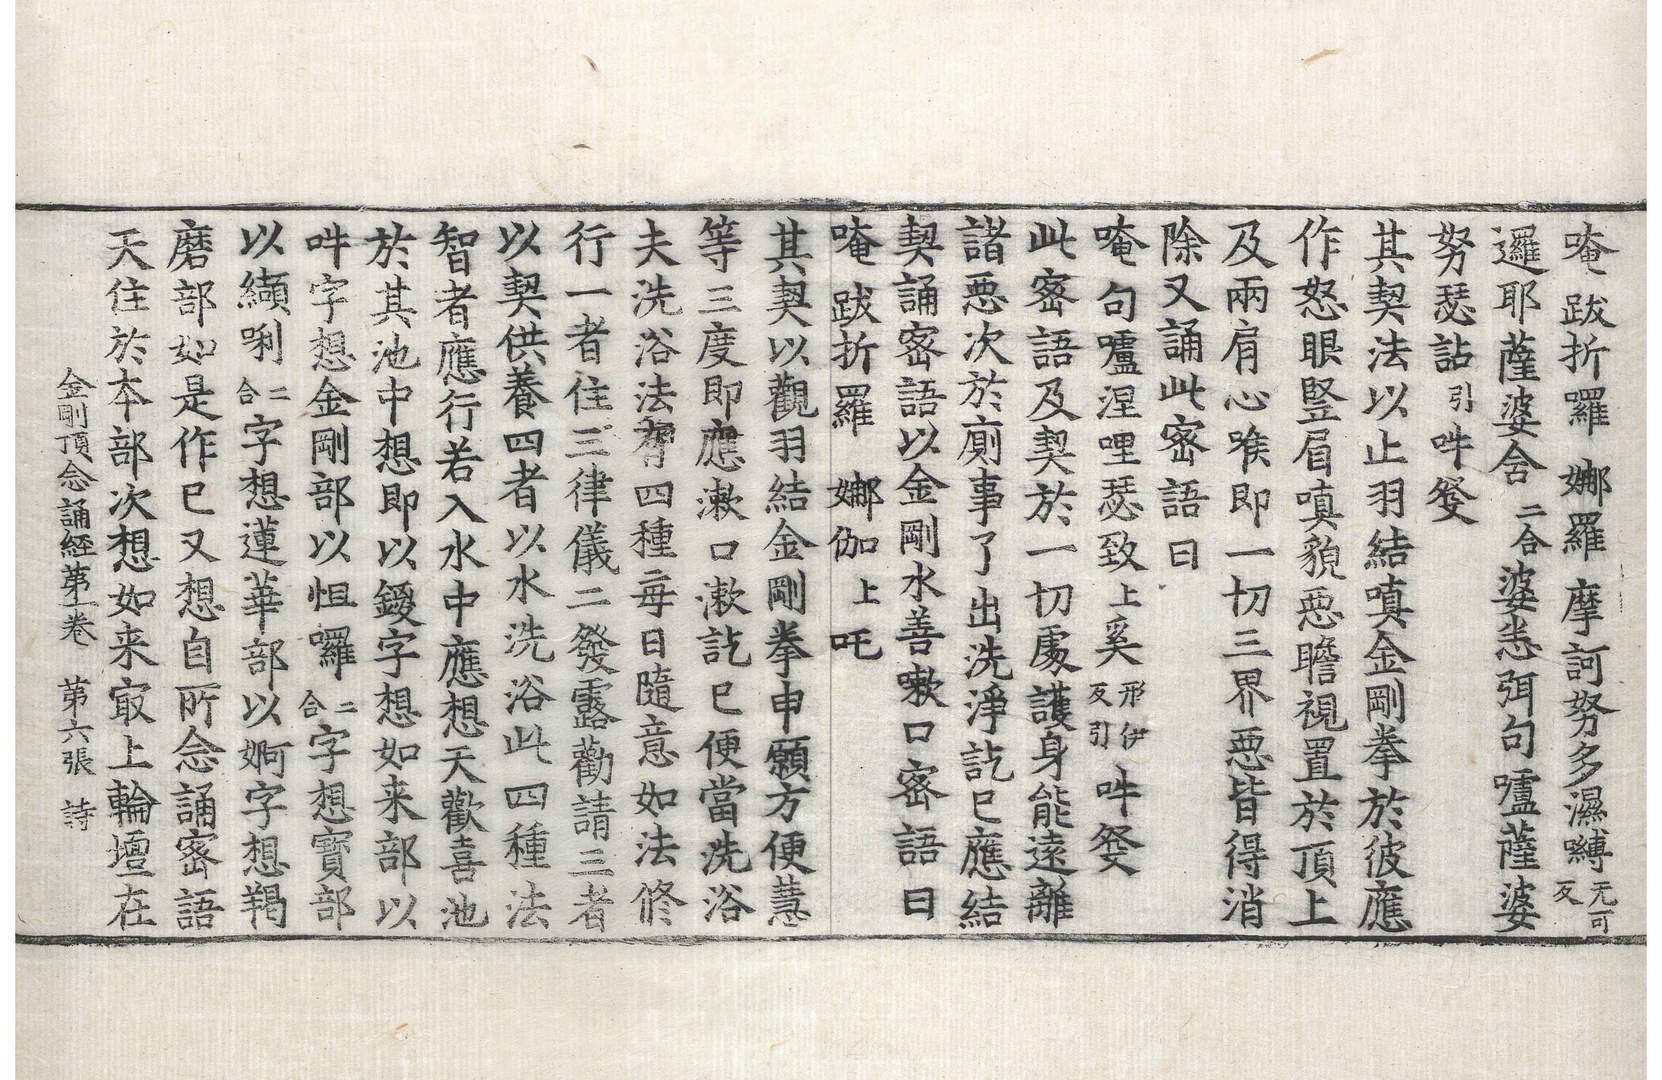 唵 跋折囉 娜羅 摩訶努多濕嚩无可反
邏耶薩婆舍二合婆恙弭句嚧薩婆
努瑟詀引 吽癹
其契法以止羽結嗔金剛拳於彼應
作怒眼竪眉嗔貌惡瞻視置於頂上
及兩肩心喉即一切三界惡皆得消
除又誦此密語曰
唵句嚧涅哩瑟致上奚形伊反引 吽癹
此密語及契於一切處護身能遠離
諸惡次於廁事了出洗淨訖已應結
契誦密語以金剛水善嗽口密語曰
唵 跋折羅 娜伽上 吒
其契以觀羽結金剛拳申願方便慧
等三度即應漱口漱訖已便當洗浴
夫洗浴法有四種每日隨意如法修
行一者住三律儀二發露勸請三者
以契供養四者以水洗浴此四種法
智者應行若入水中應想天歡喜池
於其池中想即以鑁字想如来部以
吽字想金剛部以怛囉二合字想寶部
以纈唎二合字想蓮華部以婀字想羯
磨部如是作已又想自所念誦密語
天住於本部次想如来㝡上輪壇在
金剛頂念誦經第一卷 第六張 詩